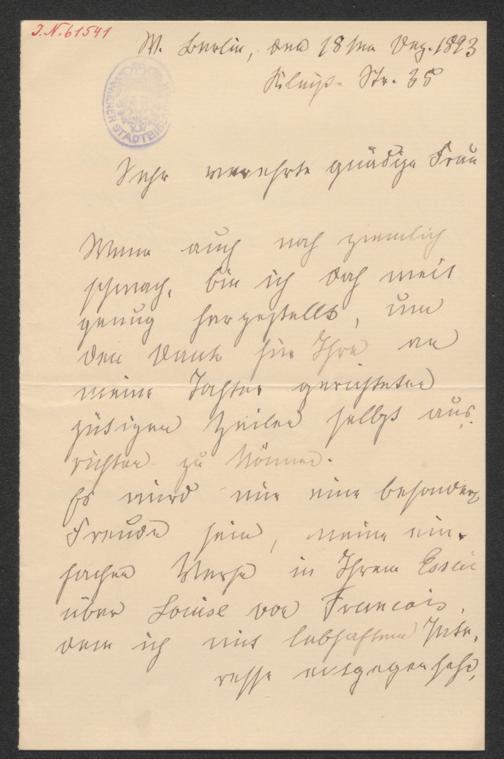 J.N. 61541
W. Berlin, den 18ten Dez. 1893
Str. 35
WIENER STADTBIBL
Sehr verehrte gnädige Frau
Wenn auch noch ziemlich
schwach, bin ich doch weit
genug hergestellt, um
den Dank für Ihre an
meine Tochter gerichteten
gütigen Zeilen selbst aus-
richten zu können.
Es wird mir eine besondere
Freude sein, meine ein-
fachen Verse in Ihrem Essai
über Louise von Francois,
dem ich mit lebhaftem Inte-
resse entgegensehe,